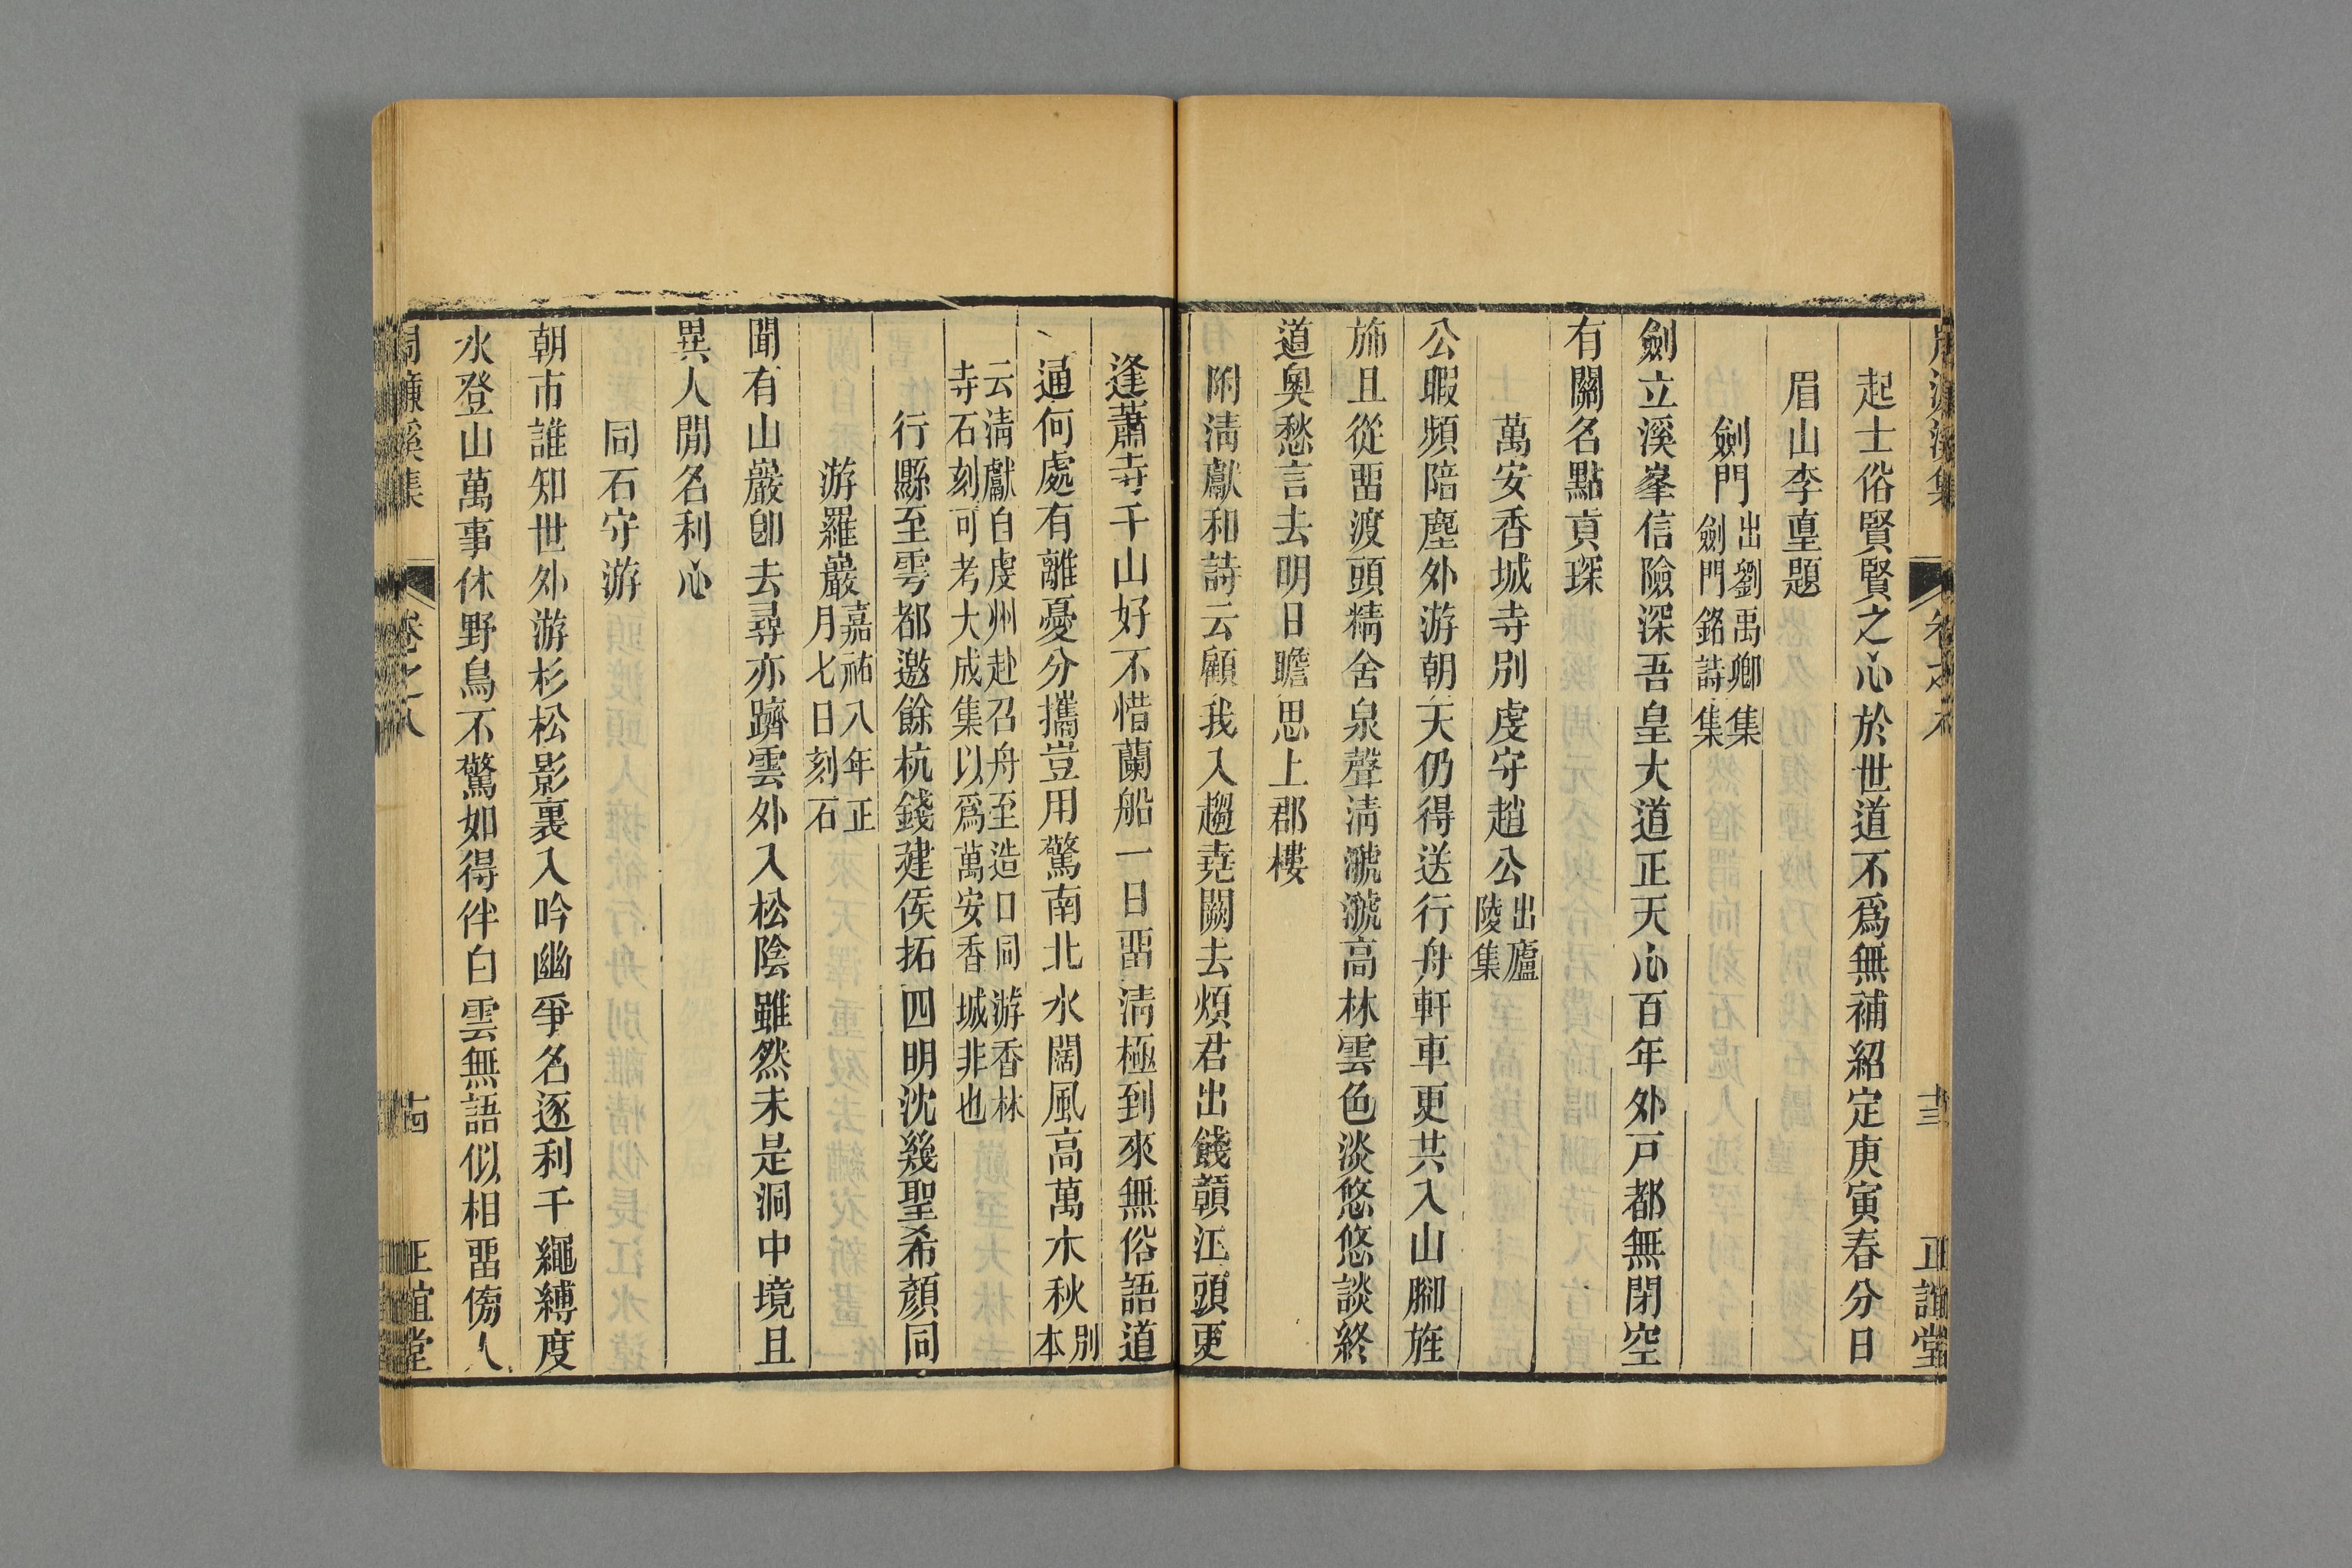 周濂溪集 卷之八 十三 正誼堂
起士俗賢賢之心於世道不爲無補紹定庚寅春分日
眉山李𡌴題
劍門 出劉禹卿集
劍門銘詩集
劍立溪峯信險深吾皇大道正天心百年外戸都無閉空
有關名點貢琛
萬安香城寺別虔守趙公 出廬
陵集
公暇頻陪塵外游朝天仍得送行舟軒車更共入山腳旌
斾且從畱渡頭精舍泉聲淸㶁㶁高林雲色淡悠悠談終
道奧愁言去明日瞻思上郡樓
附淸獻和詩云顧我入趨堯闕去煩君出餞贑江頭更
逢蕭寺千山好不惜蘭船一日畱淸極到來無俗語道
通何處有離憂分攜豈用驚南北水闊風高萬木秋 別
本
云淸獻自虔州赴召舟至造口同游香林
寺石刻可考大成集以爲萬安香城非也
行縣至雩都邀餘杭錢建侯拓四明沈幾聖希顏同
游羅巖 嘉祐八年正
月七日刻石
聞有山巖卽去尋亦躋雲外入松陰雖然未是洞中境且
異人閒名利心
同石守游
朝市誰知世外游杉松影裏入吟幽爭名逐利千繩縛度
水登山萬事休野鳥不驚如得伴白雲無語似相畱傍人
周濂溪集 卷之八 十四 正誼堂